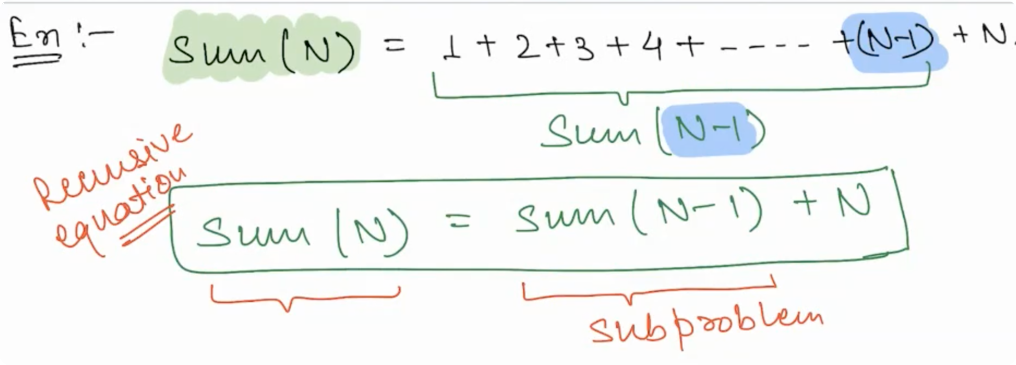 Ex :- Sum (N) = 1 + 2 + 3 + 4 + - - - - + (N-1) + N.
Sum (N-1)
Recursive
equation
Sum (N) = Sum (N-1) + N
subproblem